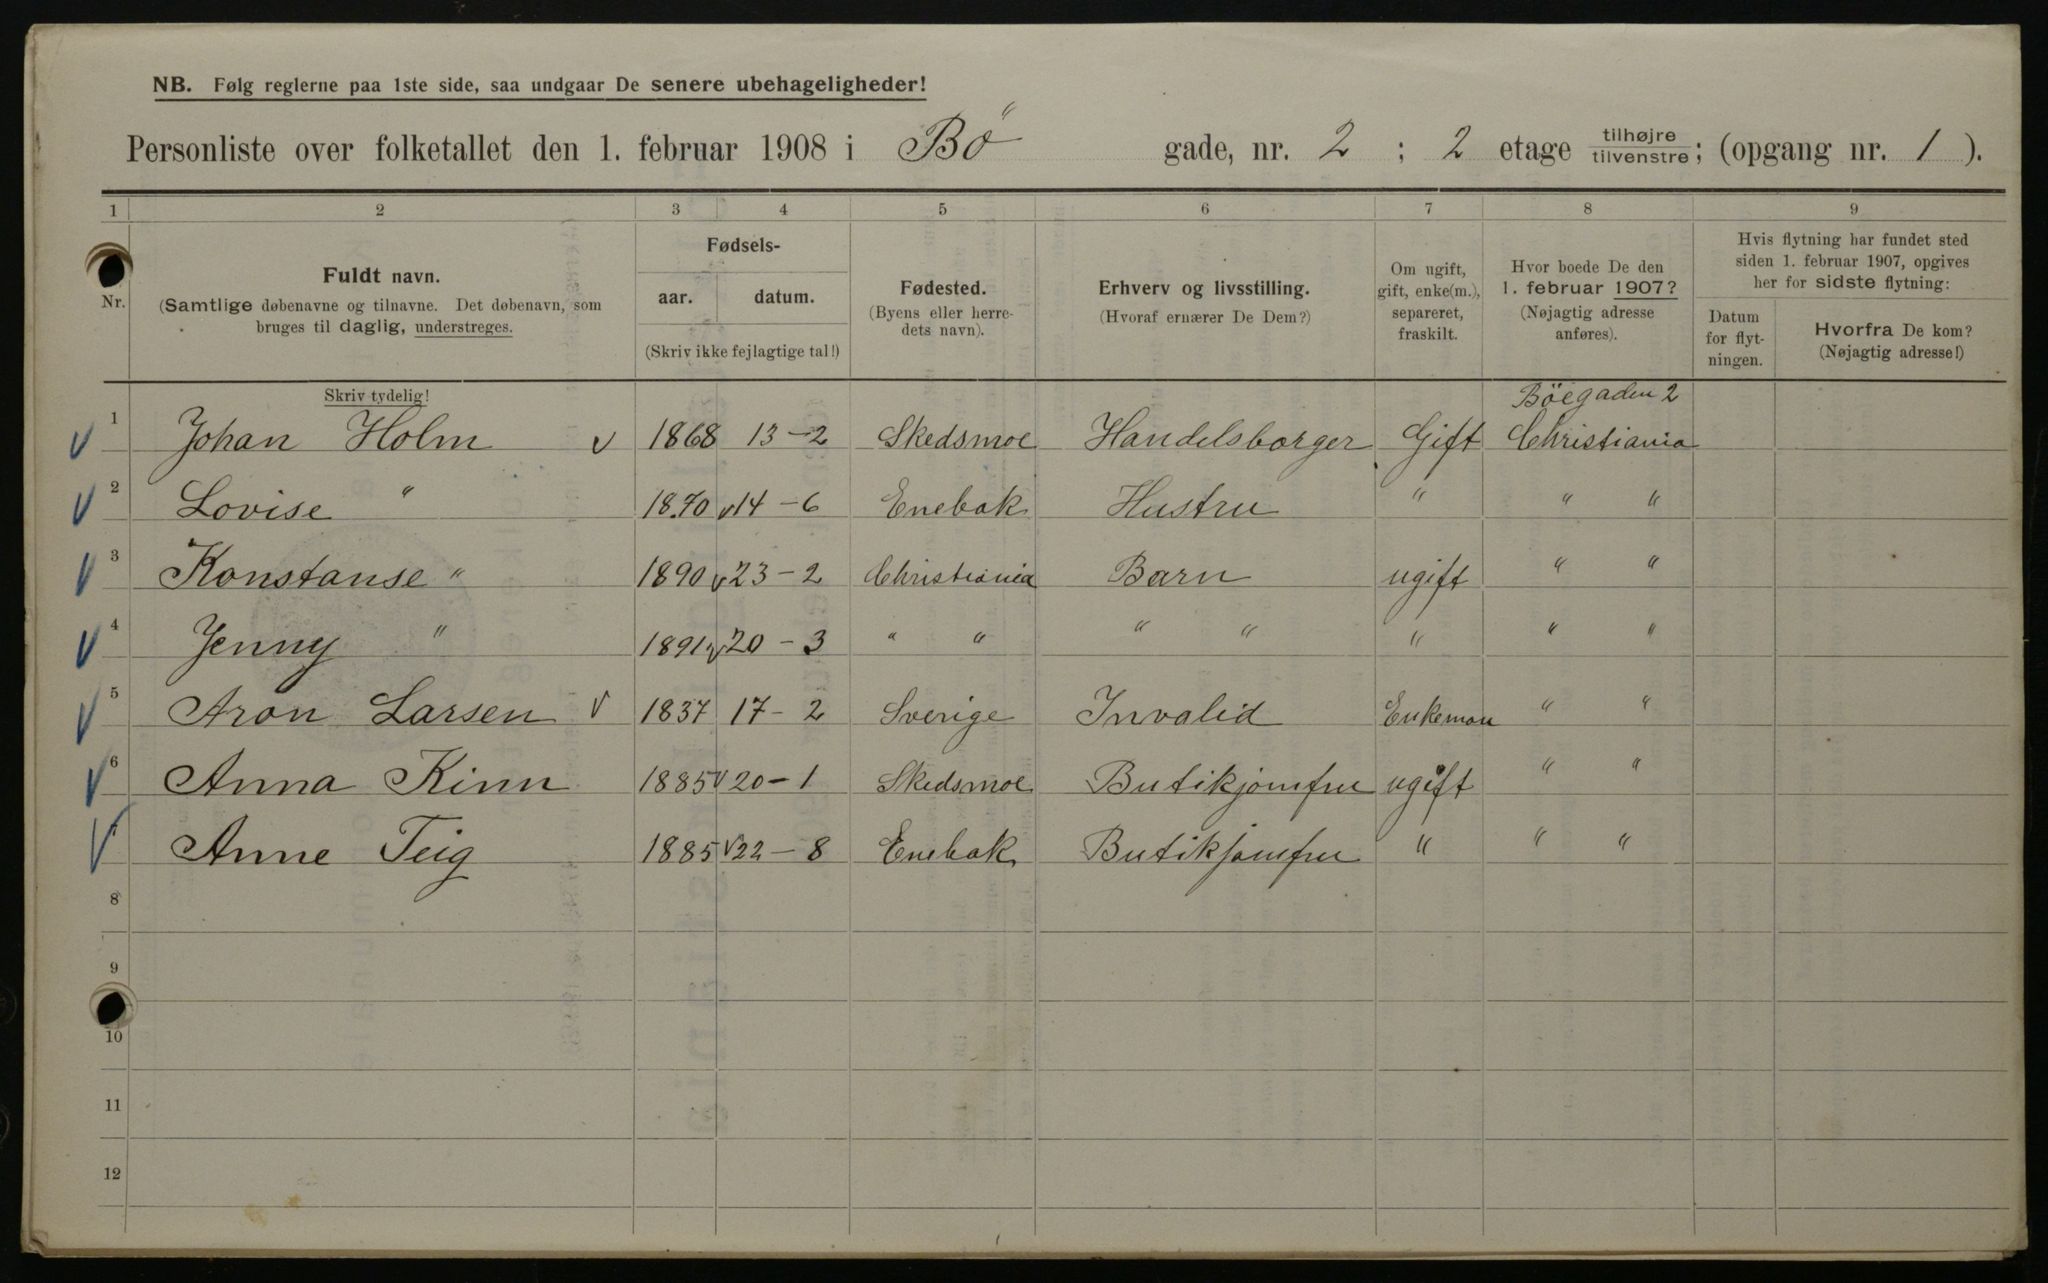 NB. Følg reglerne paa 1ste side, saa undgaar De senere ubehageligheder!
Personliste over folketallet den 1. februar 1908 i Bö gade, nr. 2 ; 2 etage tilhøjre tilvenstre; (opgang nr. 1 ).
1 2 3 4 5 6 7 8 9
Nr.
Fuldt navn.
(Samtlige døbenavne og tilnavne. Det døbenavn, som
bruges til daglig, understreges.
Fødsels-
aar. datum.
(Skriv ikke fejlagtige tal!)
Fødested.
(Byens eller herre-
dets navn).
Erhverv og livsstilling.
(Hvoraf ernærer De Dem?)
Om ugift,
gift, enke(m.),
separeret,
fraskilt.
Hvor boede De den
1. februar 1907?
(Nøjagtig adresse
anføres).
Hvis flytning har fundet sted
siden 1. februar 1907, opgives
her for sidste flytning:
Datum
for flyt-
ningen.
Hvorfra De kom?
(Nøjagtig adresse!)
Skriv tydelig!
Böegaden 2
1 Johan Holm 1868 13-2 Skedsmoe Handelsborger Gift Christiania
2 Lovise " 1870 14-6 Enebak Hustru " " "
3 Konstanse " 1890 23-2 Christiania Barn ugift " "
4 Jenny " 1891 20-3 " " " " " " "
5 Aron Larsen 1837 17-2 Sverige Invalid Enkeman " "
6 Anna Kinn 1885 20-1 Skedsmoe Butikjomfru ugift " "
Anne Teig 1885 22-8 Enebak Butikjomfru " " "
8
9
10
11
12